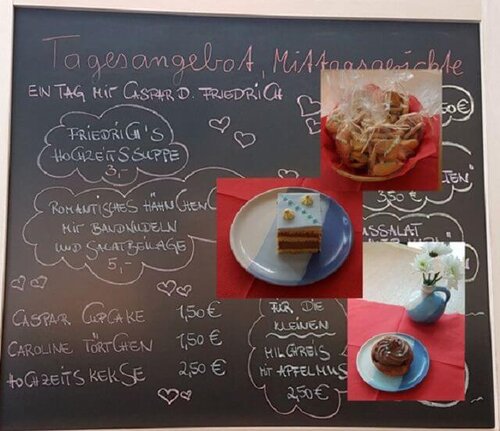 Tagesangebot, Mittagsgerichte
EIN TAG MIT CASPAR D. FRIEDRICH
FRIEDRICH'S
HOCHZEITSSUPPE
3,-
ROMANTISCHES HÄHNCHEN
MIT BANDNUDELN
UND SALATBEILAGE
5,-
CASPAR CUPCAKE 1,50€
CAROLINE TÖRTCHEN 1,50€
HOCHZEITSKEKSE 2,50€
50€
3,50€
FÜR DIE
KLEINEN
MILCHREIS
MIT APFELMUS
2,50€